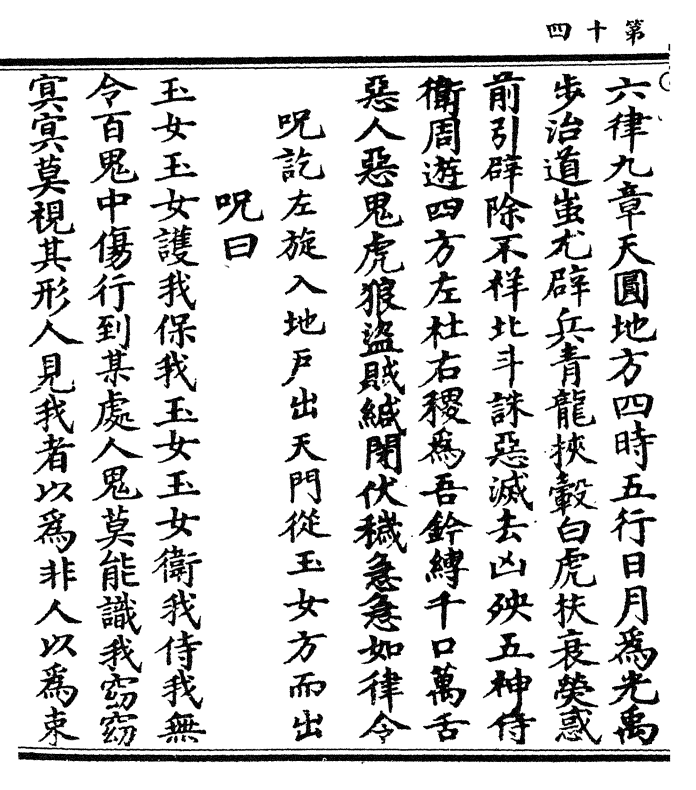 第十四
六律九章天圓地方四時五行日月爲光禹
步治道蚩尤辟兵青龍挾轂白虎扶衰熒惑
前引辟除不祥北斗誅惡滅去凶殃五神侍
衛周遊四方左社右稷爲吾鈐縛千口萬舌
惡人惡鬼虎狼盜賊緘閉伏穢急急如律令
呪訖左旋入地戶出天門從玉女方而出
呪曰
玉女玉女護我保我玉女玉女衛我侍我無
令百鬼中傷行到某處人鬼莫能識我窈窈
冥冥莫視其形人見我者以爲非人以爲束